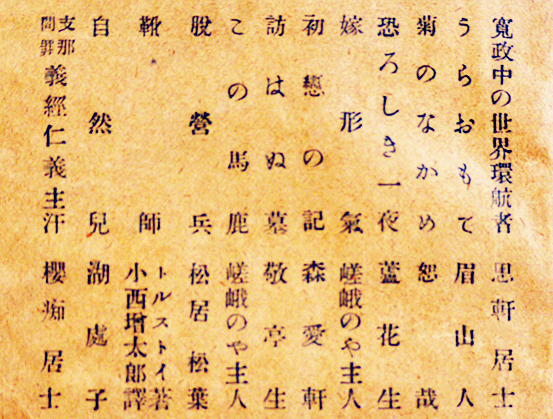 寬政中の世界環航者 思軒居士
うらおもて 眉山人
菊のながめ 恕哉
恐ろしき一夜 蘆花生
嫁形氣 嵯峨のや主人
初戀の記 森愛軒
訪はぬ墓 敬亭生
この馬鹿 嵯峨のや主人
脫營兵 松居松葉
靴師 トルストイ著 小西增太郎譯
自然兒 湖處子
支那問罪 義經仁義主汗 櫻痴居士